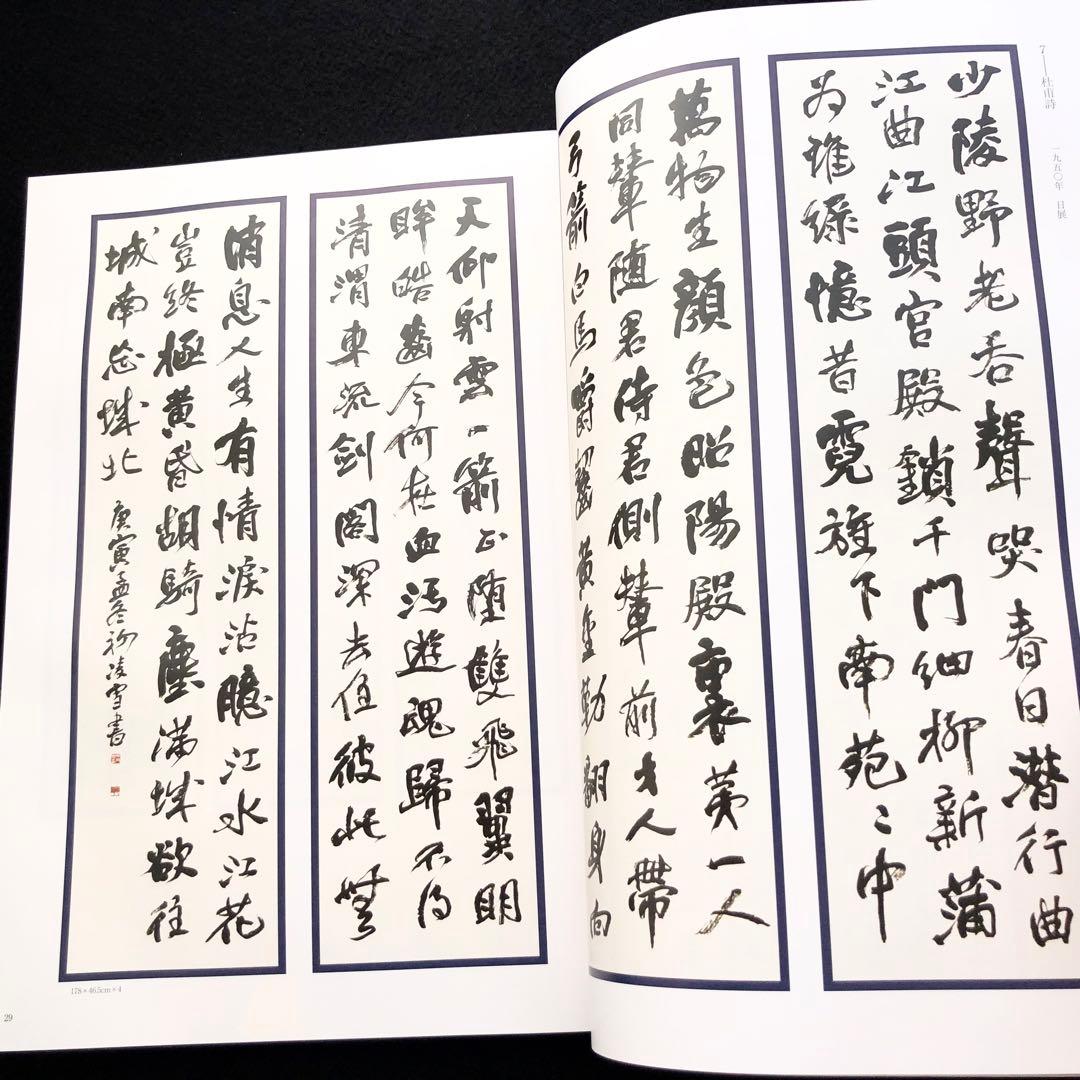 7——杜甫詩
一九五〇年 日展
少陵野老吞聲哭春日潜行曲
江曲江頭宮殿鎖千門細柳新蒲
為誰緑憶昔霓旌下南苑〻中
萬物生顔色昭陽殿裏第一人
同輦随君侍君側輦前才人帶
弓箭白馬嚼齧黄金勒翻身向
天仰射雲一箭正堕雙飛翼明
眸皓齒今何在血污遊魂歸不得
清渭東流劍閣深去住彼此無
消息人生有情淚沾臆江水江花
豈終極黄昏胡騎塵满城欲往
城南忘城北 庚寅孟冬 凌雪書
178×46.5cm×4
29